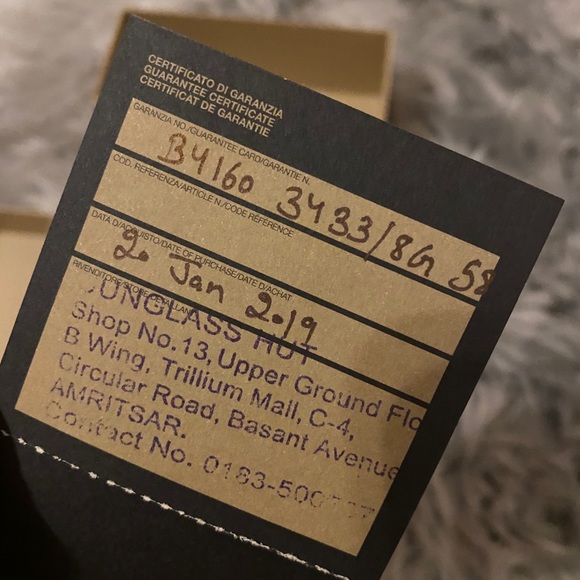 CERTIFICATO DI GARANZIA
GUARANTEE CERTIFICATE
CERTIFICAT DE GARANTIE
GARANZIA NO./GUARANTEE CARD/GARANTIE N.
B4160 3433/8G 58
COD. REFERENZA/ARTICLE N./CODE RÉFÉRENCE
DATA D'ACQUISTO/DATE OF PURCHASE/DATE D'ACHAT
2. Jan 2019
RIVENDITORE/STORE/DÉTAILLANT
SUNGLASS HUT
Shop No.13, Upper Ground Flo
B Wing, Trillium Mall, C-4,
Circular Road, Basant Avenue
AMRITSAR.
Contact No. 0183-500